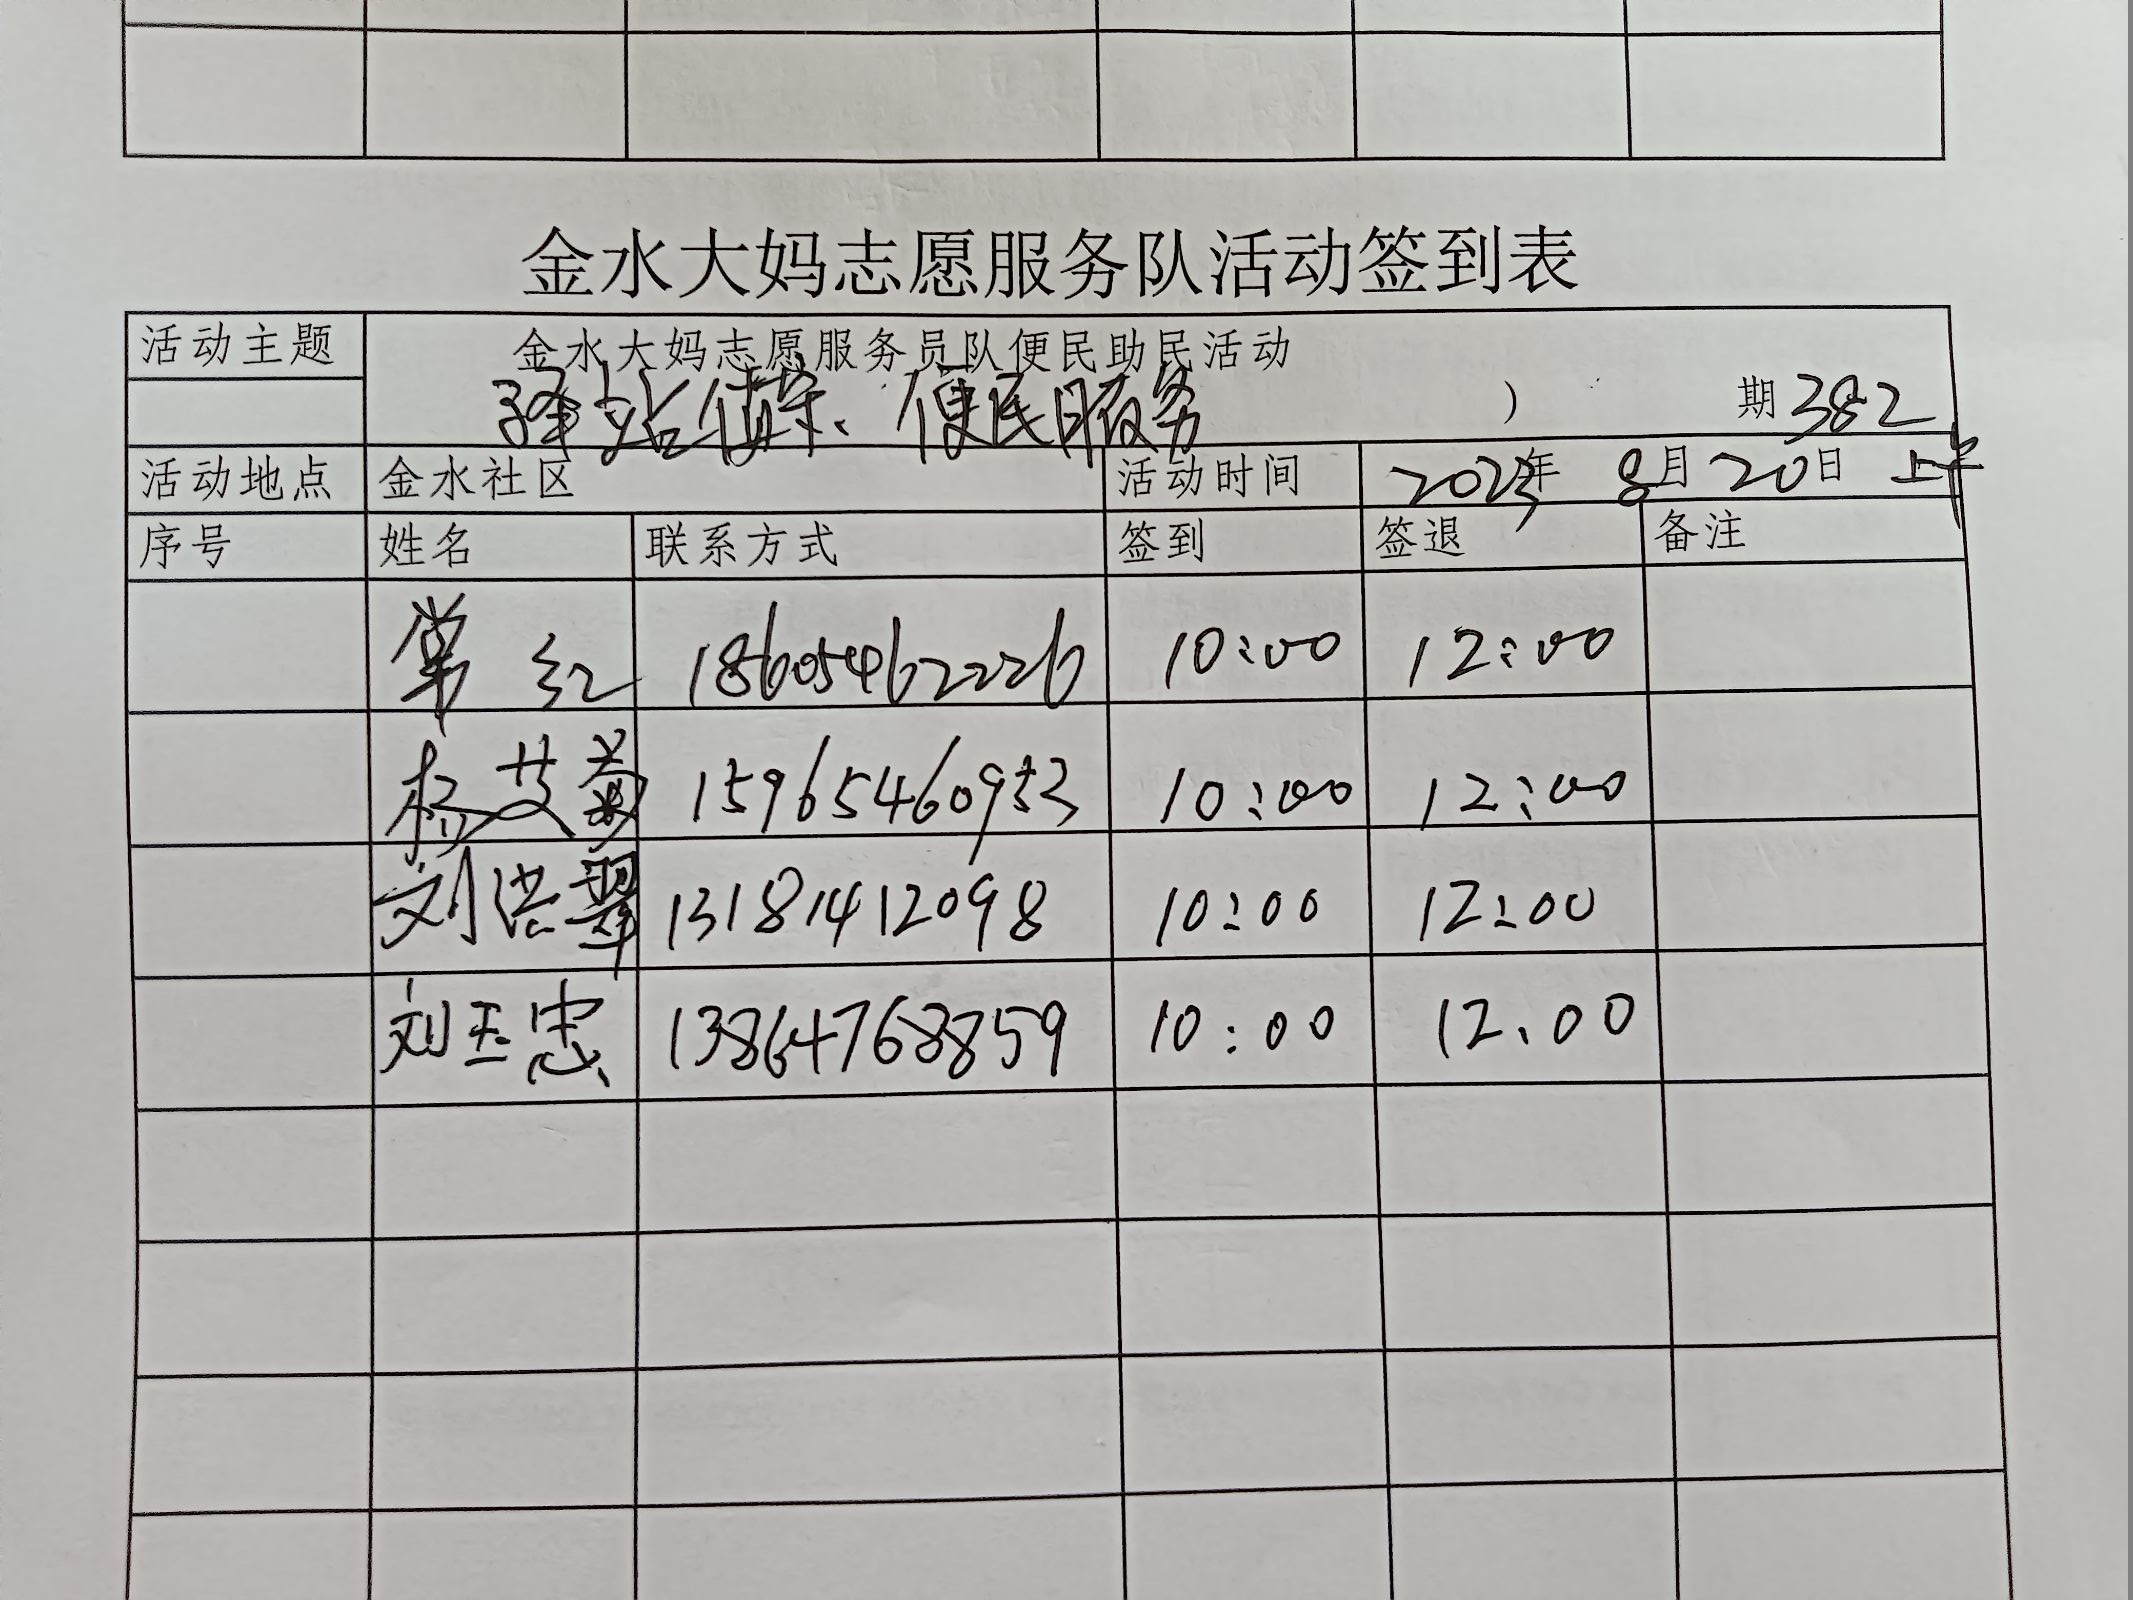 金水大妈志愿服务队活动签到表
活动主题 金水大妈志愿服务员队便民助民活动
驿站值守、便民服务 ） 期 382
活动地点 金水社区 活动时间 2023年 8月 20日 上午
序号 姓名 联系方式 签到 签退 备注
常红 18605462226 10:00 12:00
杨艾菊 15965460953 10:00 12:00
刘洪翠 13181412098 10:00 12:00
刘玉忠 13864768859 10:00 12.00